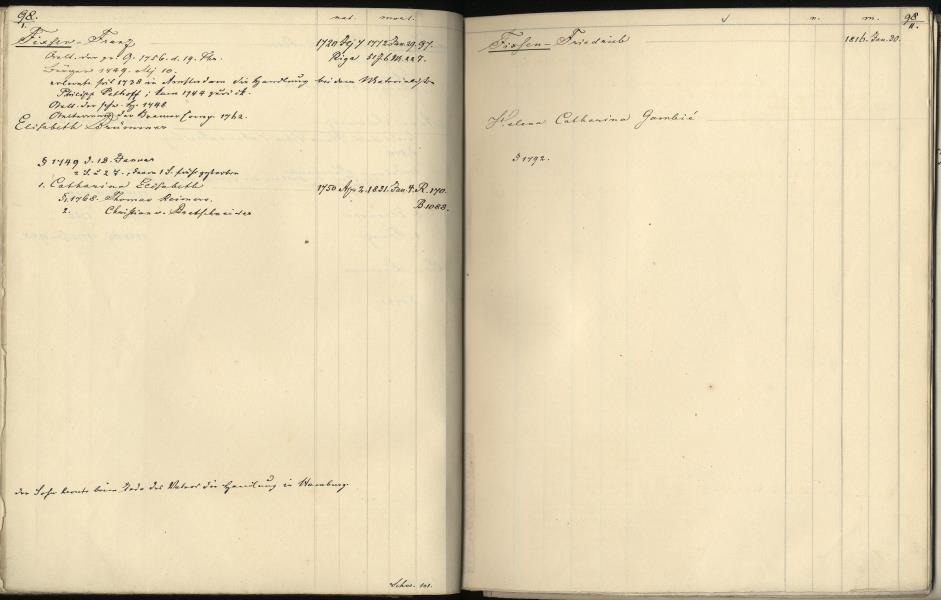 98.
I.
nat. mort.
Fixsen - Franz 1720 Dez 7 1772 Jan. 29. 97.
Aelt. der gr. G. 1756. d. 19. Riga 51 J. 6 M. 22 T.
Bürger 1749. 10.
erlernte seit 1738 in Amsterdam die Handlung bei dem Materialisten
Philipp Pelhoff; kam 1744 zurück.
Aelt. der schw. H. 1748
Aeltermann der Kramer Comp. 1762.
Elisabeth Brümmer
§ 1749 d. 18. Januar
2 S. u 2 T., davon 1 S. früh gestorben
1. Catharina Elisabeth 1750 Apr 2. 1821. Jan. 4. R. 170.
§. 1768. Thomas Reimers. B 1088.
2. Christian v. Bretschneider
der Sohn lernte beim Tode des Vaters die Handlung in Hamburg.
Schw. 101.
n. m. 98
II.
Fixsen - Friedrich 1816. Jan. 30.
Helena Catharina Gambié
§ 1792.